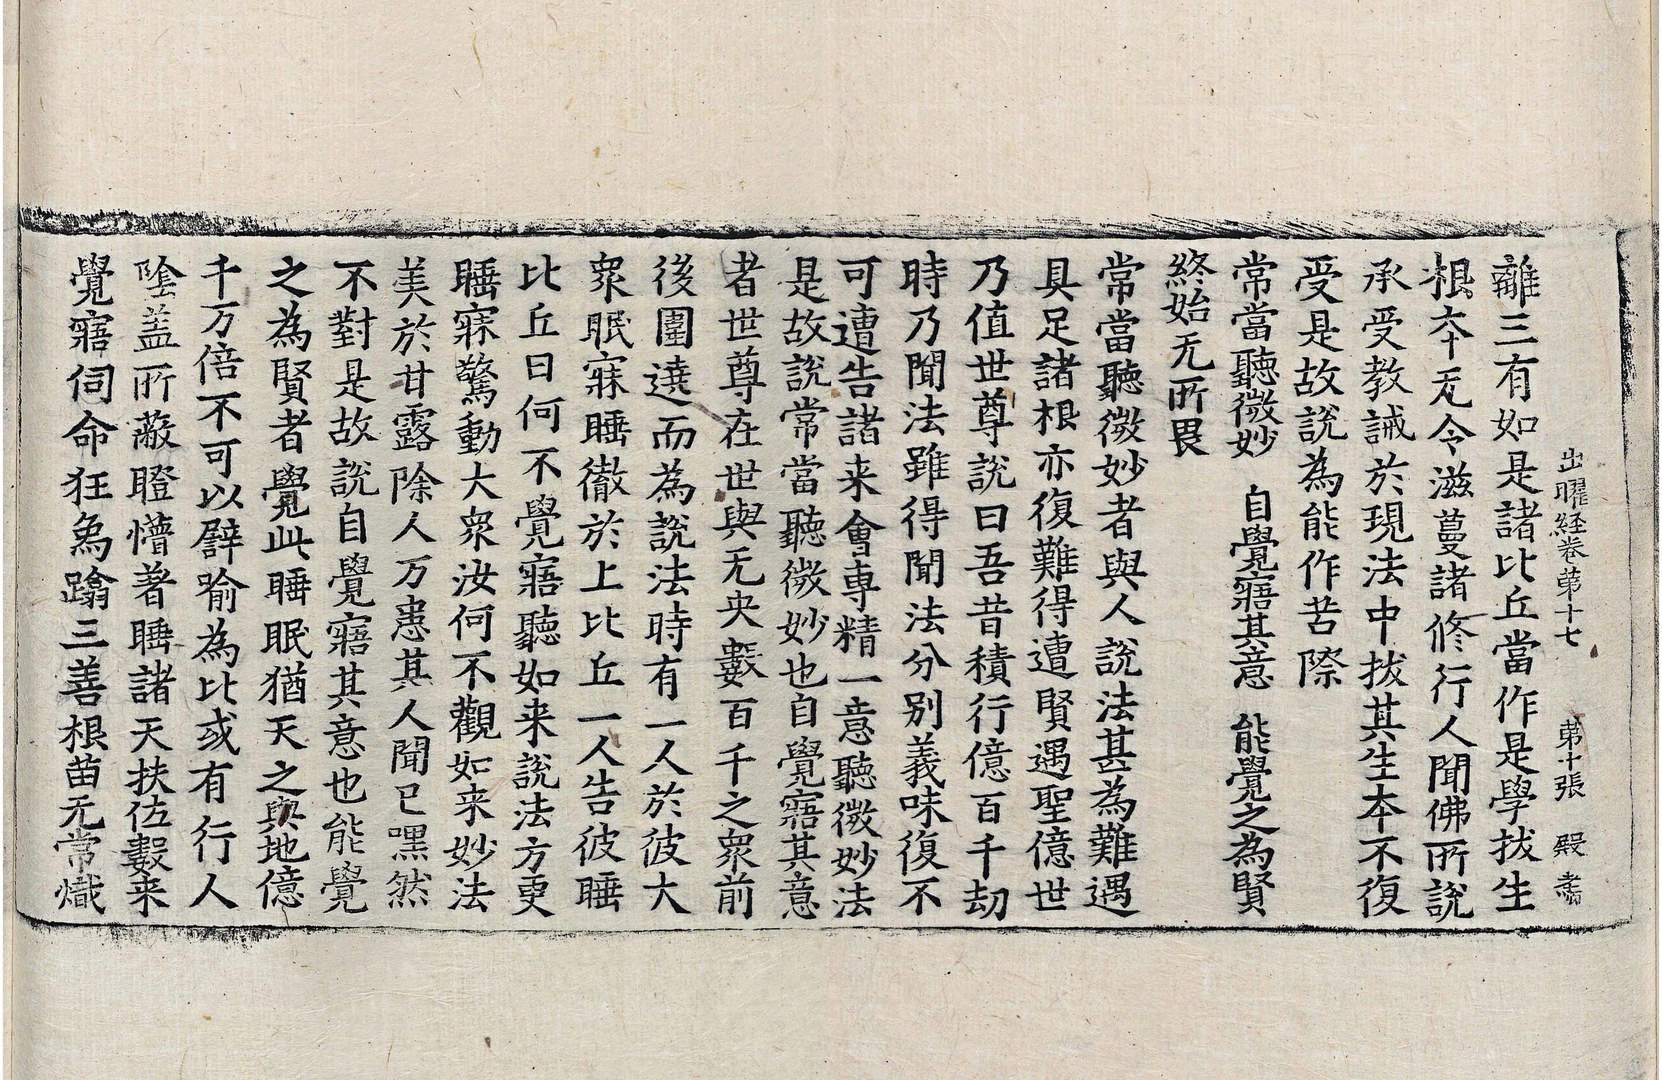 出曜経卷苐十七 苐十張 殿
離三有如是諸比丘當作是學拔生
根夲无令滋蔓諸脩行人聞佛所說
承受教誡於現法中拔其生夲不復
受是故說為能作苦際
常當聽微妙 自覺寤其意 能覺之為賢
終始无所畏
常當聽微妙者與人說法甚為難遇
具足諸根亦復難得遭賢遇聖億世
乃值世尊說曰吾昔積行億百千劫
時乃聞法雖得聞法分別義味復不
可遭告諸来會專精一意聽微妙法
是故說常當聽微妙也自覺寤其意
者世尊在世與无央數百千之衆前
後圍遶而為說法時有一人於彼大
衆眠寐睡徹於上比丘一人告彼睡
比丘曰何不覺寤聽如来說法方更
睡寐驚動大衆汝何不觀如来妙法
美於甘露除人万患其人聞已嘿然
不對是故說自覺寤其意也能覺
之為賢者覺此睡眠猶天之與地億
千万倍不可以譬喻為比或有行人
陰盖所蔽瞪瞢著睡諸天扶佐數来
覺寤伺命狂象蹹三善根苗无常熾